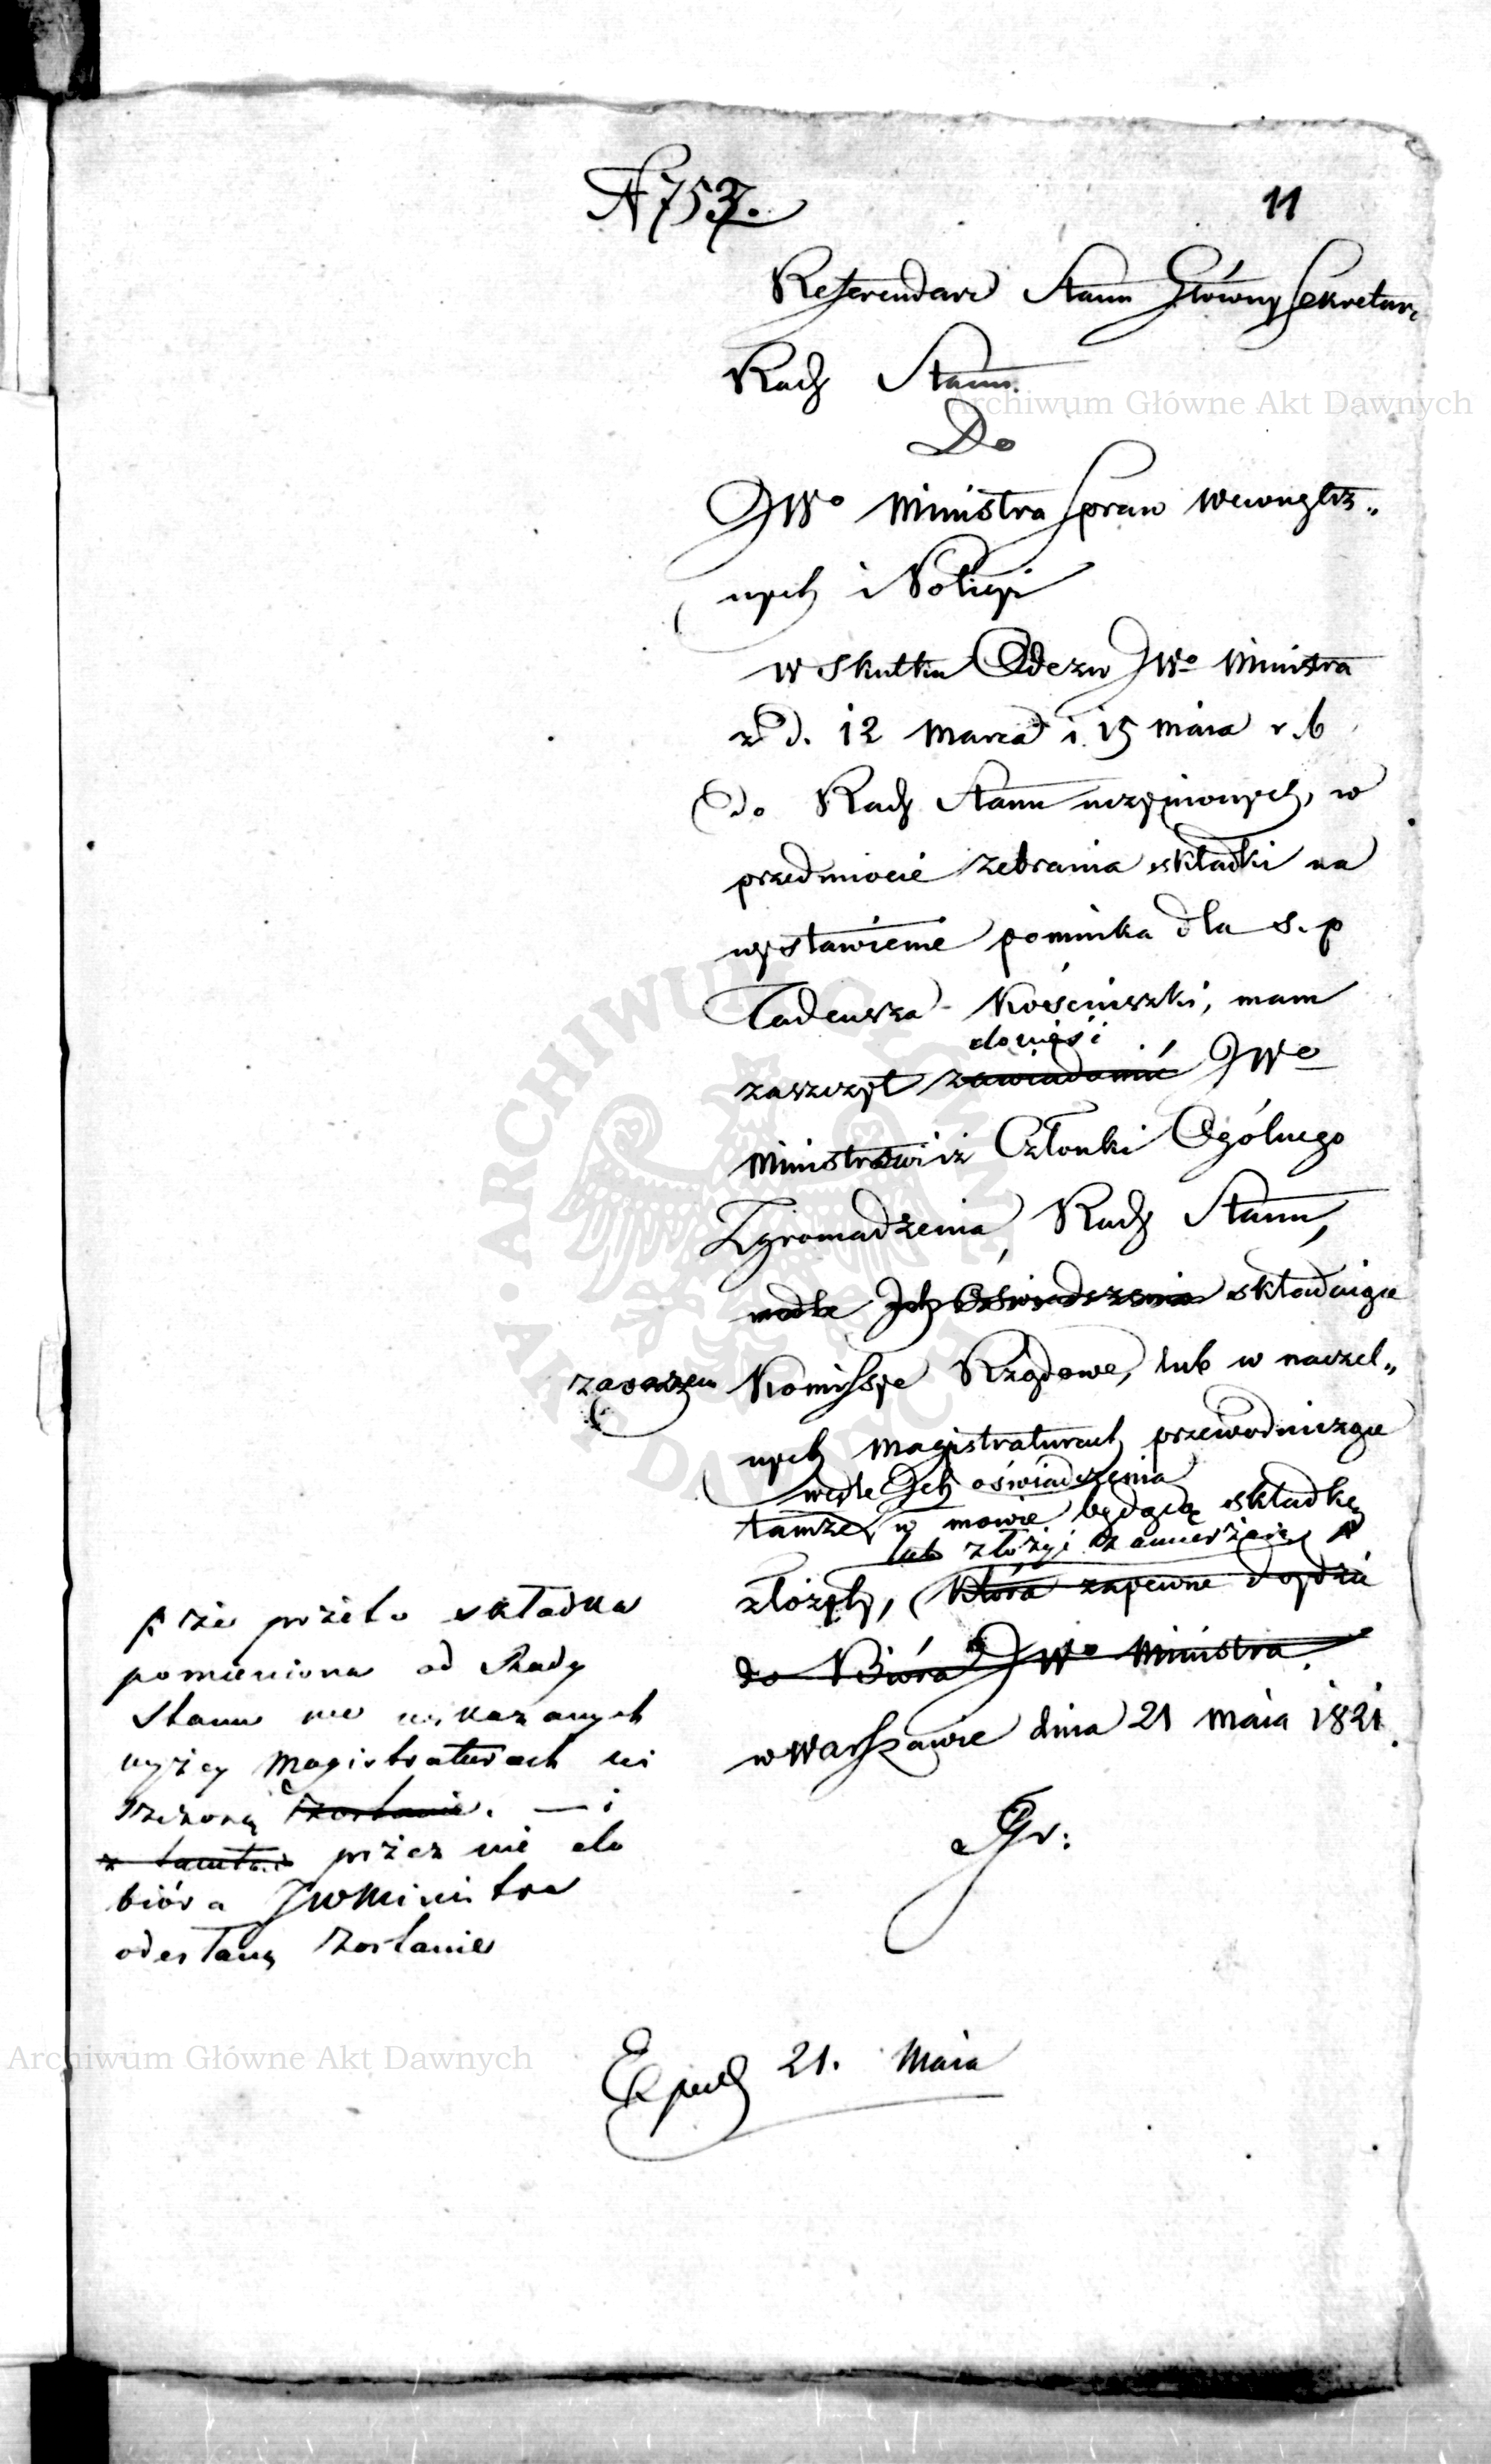 N 757.
11
Referendarz Stanu Główny Sekretarz
Rady Stanu.
Do
JWo Ministra Spraw Wewnętrz„
nych i Policyi
W skutku Odezw JWo Ministra
z d. 12 Marca i 15 Maia r. b
do Rady Stanu uczynionych, w
przedmiocie zebrania składki na
wystawienie pomnika dla s. p
Tadeusza Kościuszki, mam
donieść
zaszczyt zawiadomić JWo
Ministrowi iż Członki Ogólnego
Zgromadzenia Rady Stanu,
wedle Ich Oświadczenia składaiące
zarazem Kommissye Rządowe, lub w naczel„
nych Magistraturach przewodniczące
wedle Ich oświadczenia
tamże w mowie będącą składkę
lub złożyć zamierzaią
złożyły, która zapewne doydzie
do Biura JWo Ministra.
w Warszawie dnia 21 Maia 1821.
Gr:
że przeto składka
pomieniona od Rady
Stanu we wskazanych
wyżey Magistraturach ui
szczoną zostanie. — i
z tamtąd przez nie do
bióra JWMinistra
odesłaną zostanie
Exped 21. Maia
Archiwum Główne Akt Dawnych
Archiwum Główne Akt Dawnych
ARCHIWUM GŁÓWNE AKT DAWNYCH